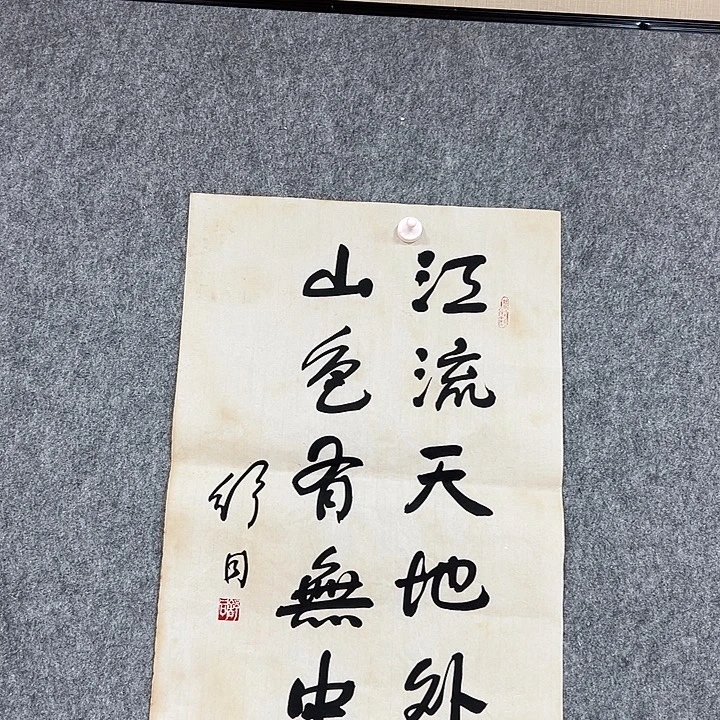 江流天地外
山色有無中
舒同